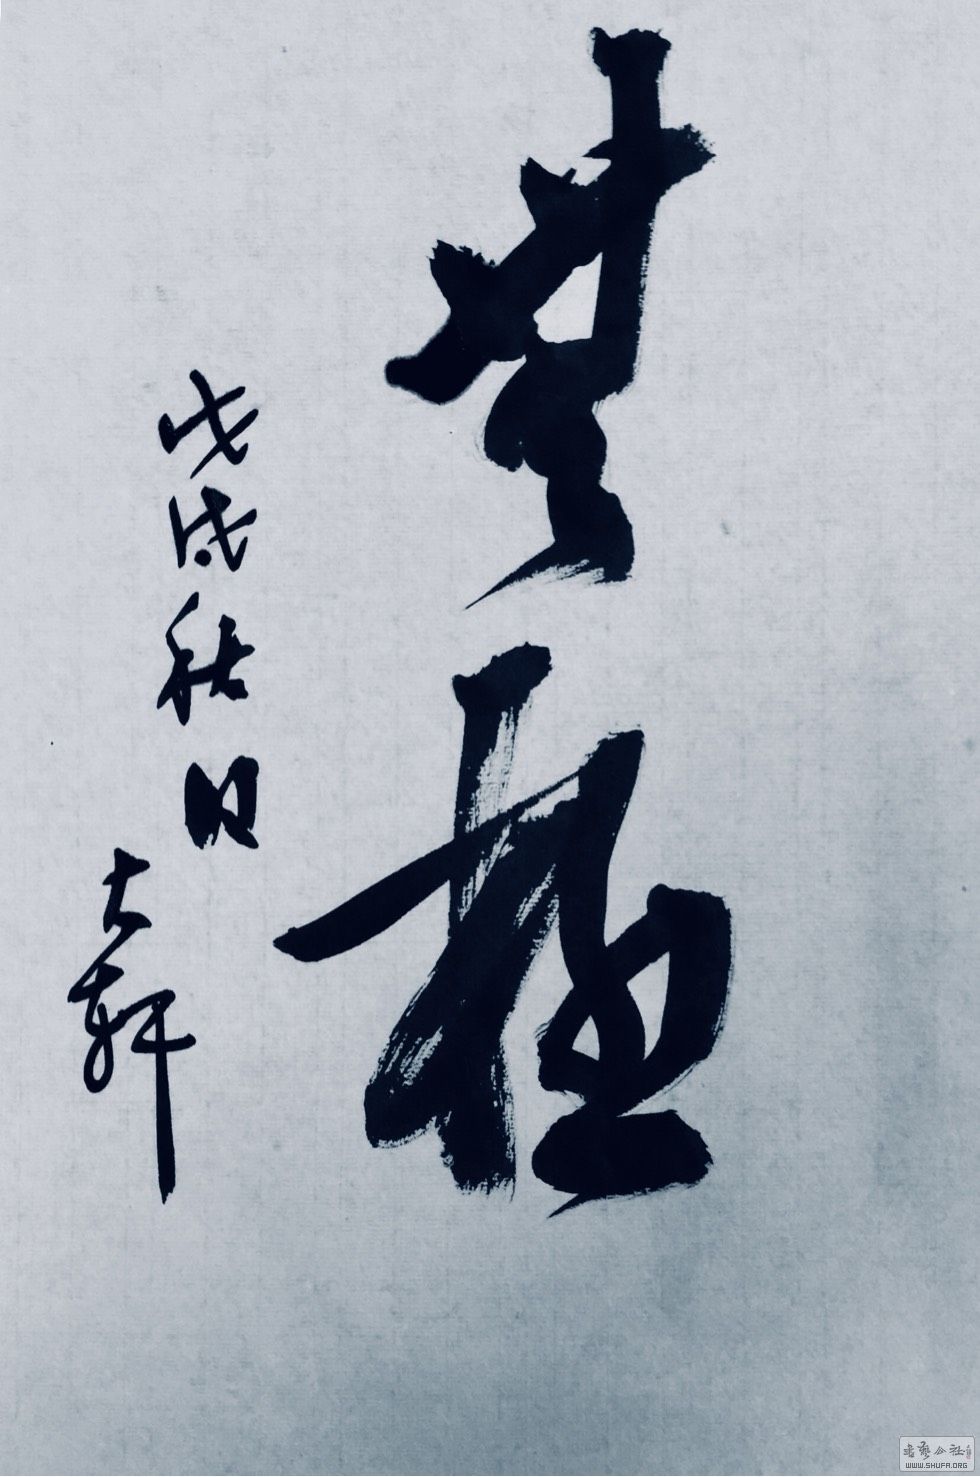 無極
戊戌秋日
大軒
書艺公社
WWW.SHUFA.ORG